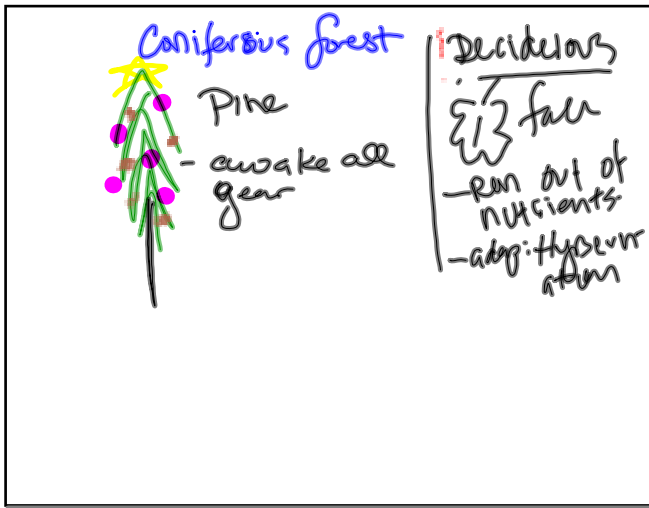 Coniferous forest
Pine
- awake all
year
Decidelous
fall
- Run out of
nutrients
- adap: Hybernr
ation